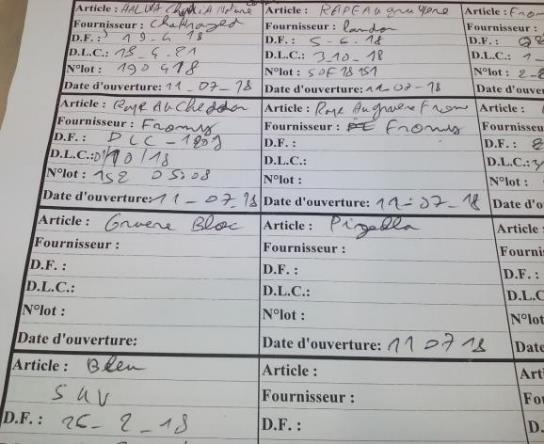 Article : HALWA
Fournisseur :
D.F. : 19-4-18
D.L.C. : 18-4-21
N°lot : 190418
Date d'ouverture: 11-07-18
Article : RAPE Au gruyere
Fournisseur : landon
D.F. : 5-6-18
D.L.C. : 3-10-18
N°lot : SOF18151
Date d'ouverture: 11-07-18
Article : From
Fournisseur :
D.F. :
D.L.C. : 1-
N°lot : 2-8
Date d'ouverture
Article : Rape Au Cheddar
Fournisseur : Fromy
D.F. : DLC
D.L.C.: /10/18
N°lot : 152 05:08
Date d'ouverture: 11-07-18
Article : Rape Au gruere From
Fournisseur : Fromy
D.F. :
D.L.C.:
N°lot :
Date d'ouverture: 11-07-18
Article :
Fournisseu
D.F. : 8
D.L.C.:
N°lot :
Date d'o
Article : Gruere Bloc
Fournisseur :
D.F. :
D.L.C.:
N°lot :
Date d'ouverture:
Article :
Fournisseur :
D.F. :
D.L.C.:
N°lot :
Date d'ouverture: 11 07 18
Article
Fourni
D.F. :
D.L.C
N°lot
Date
Article : Bleu
D.F. : 26-2-18
Article :
Fournisseur :
D.F. :
Arti
Fou
D.